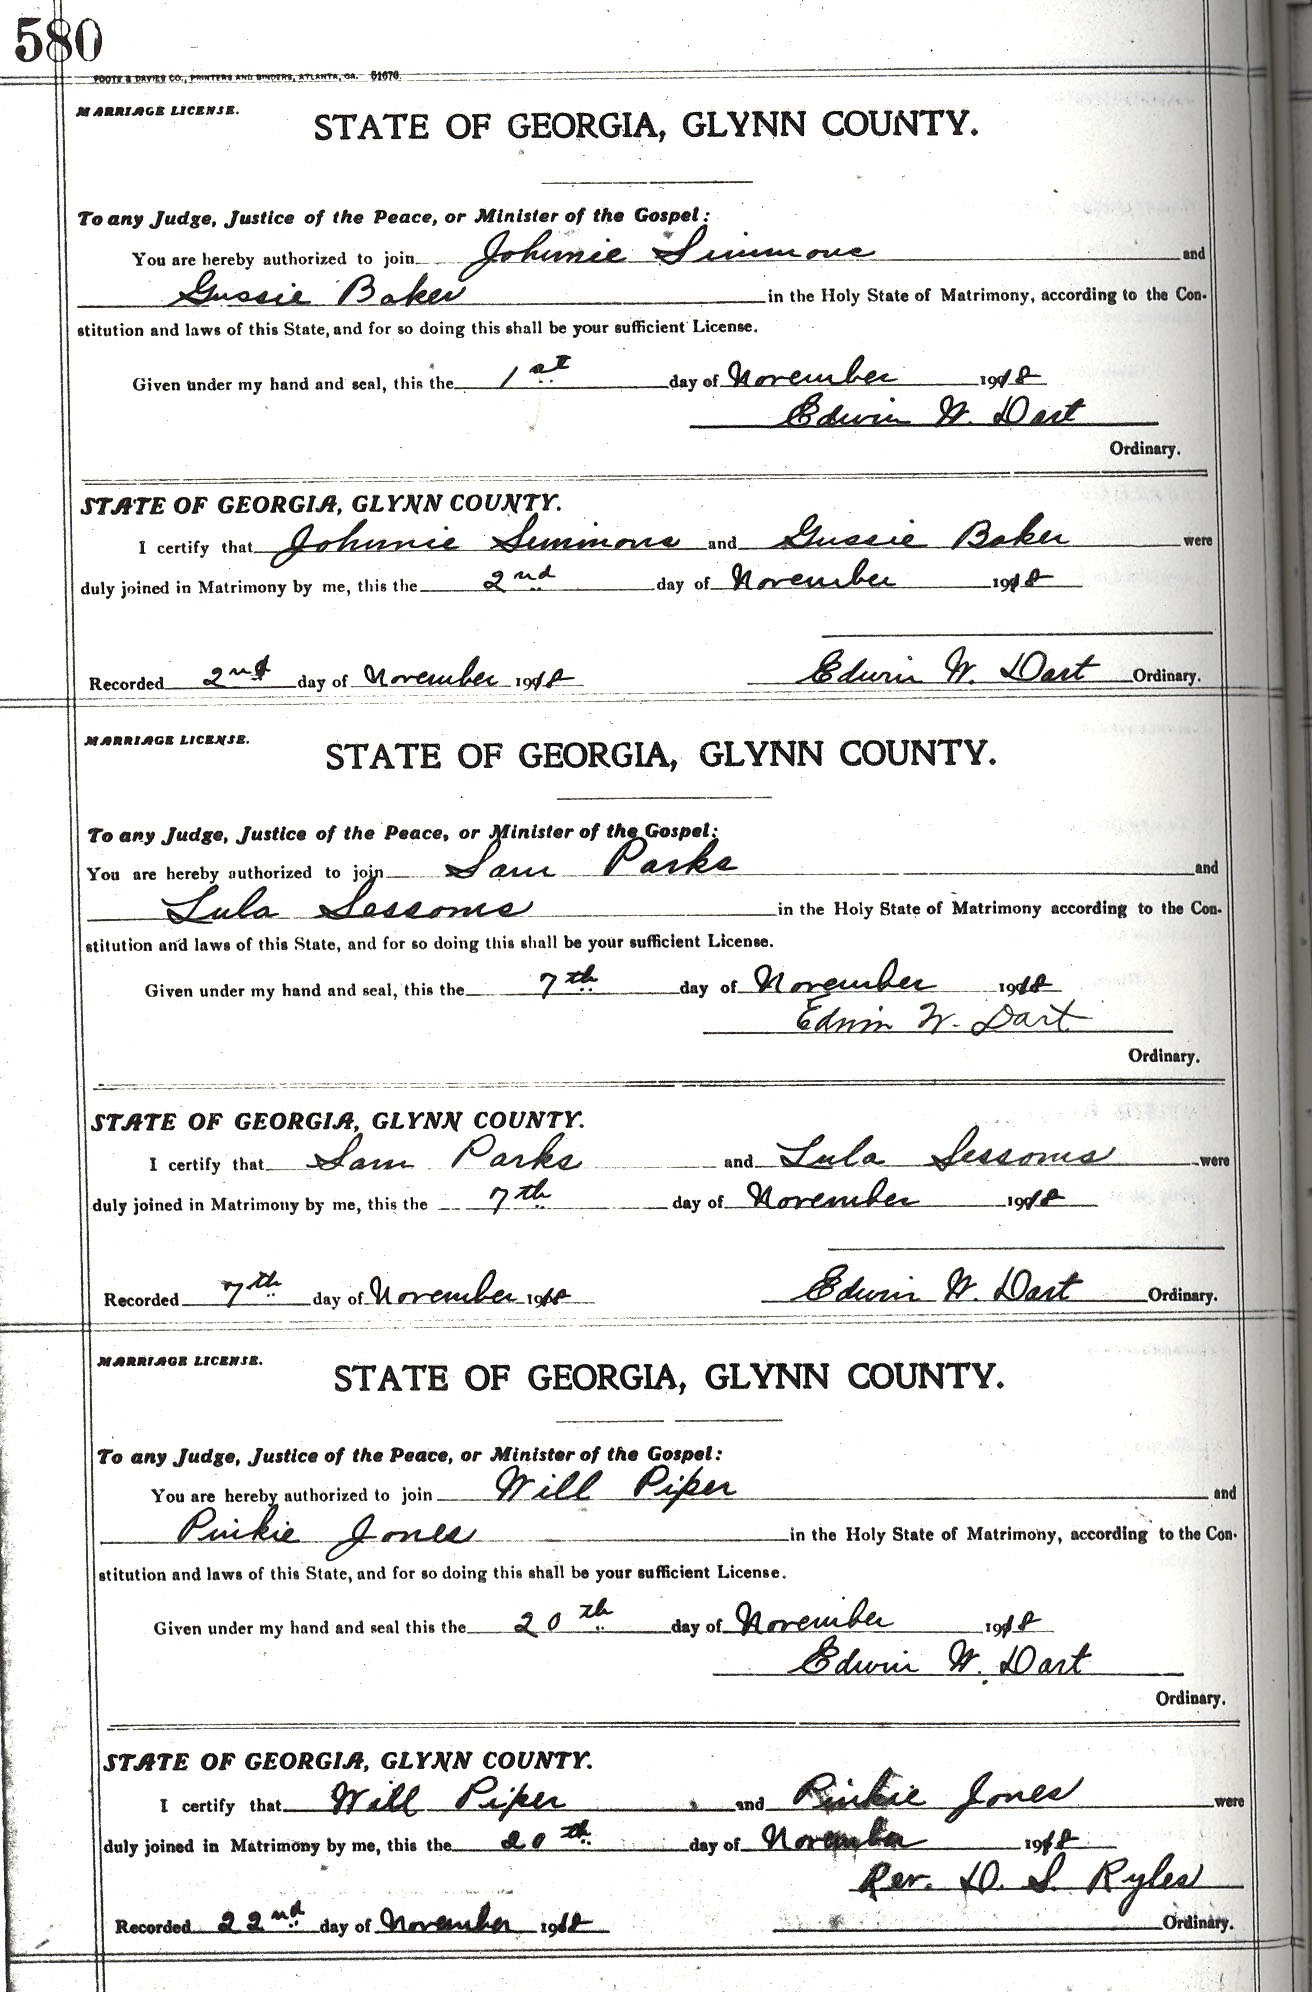 580
FOOTE & DAVIES CO., PRINTERS AND BINDERS, ATLANTA, GA. 61676.
MARRIAGE LICENSE.
STATE OF GEORGIA, GLYNN COUNTY.
To any Judge, Justice of the Peace, or Minister of the Gospel:
You are hereby authorized to join Johnnie Simmons and
Gussie Baker in the Holy State of Matrimony, according to the Con-
stitution and laws of this State, and for so doing this shall be your sufficient License.
Given under my hand and seal, this the 1st day of November 1918
Edwin W. Dart
Ordinary.
STATE OF GEORGIA, GLYNN COUNTY.
I certify that Johnnie Simmons and Gussie Baker were
duly joined in Matrimony by me, this the 2nd day of November 1918
Recorded 2nd day of November 1918 Edwin W. Dart Ordinary.
MARRIAGE LICENSE.
STATE OF GEORGIA, GLYNN COUNTY.
To any Judge, Justice of the Peace, or Minister of the Gospel:
You are hereby authorized to join Sam Parks and
Lula Sessoms in the Holy State of Matrimony according to the Con-
stitution and laws of this State, and for so doing this shall be your sufficient License.
Given under my hand and seal, this the 7th day of November 1918
Edwin W. Dart
Ordinary.
STATE OF GEORGIA, GLYNN COUNTY.
I certify that Sam Parks and Lula Sessoms were
duly joined in Matrimony by me, this the 7th day of November 1918
Recorded 7th day of November 1918 Edwin W. Dart Ordinary.
MARRIAGE LICENSE.
STATE OF GEORGIA, GLYNN COUNTY.
To any Judge, Justice of the Peace, or Minister of the Gospel:
You are hereby authorized to join Will Piper and
Pinkie Jones in the Holy State of Matrimony, according to the Con-
stitution and laws of this State, and for so doing this shall be your sufficient License.
Given under my hand and seal this the 20th day of November 1918
Edwin W. Dart
Ordinary.
STATE OF GEORGIA, GLYNN COUNTY.
I certify that Will Piper and Pinkie Jones were
duly joined in Matrimony by me, this the 20th day of November 1918
Rev. D. S. Ryles
Recorded 22nd day of November 1918 Ordinary.